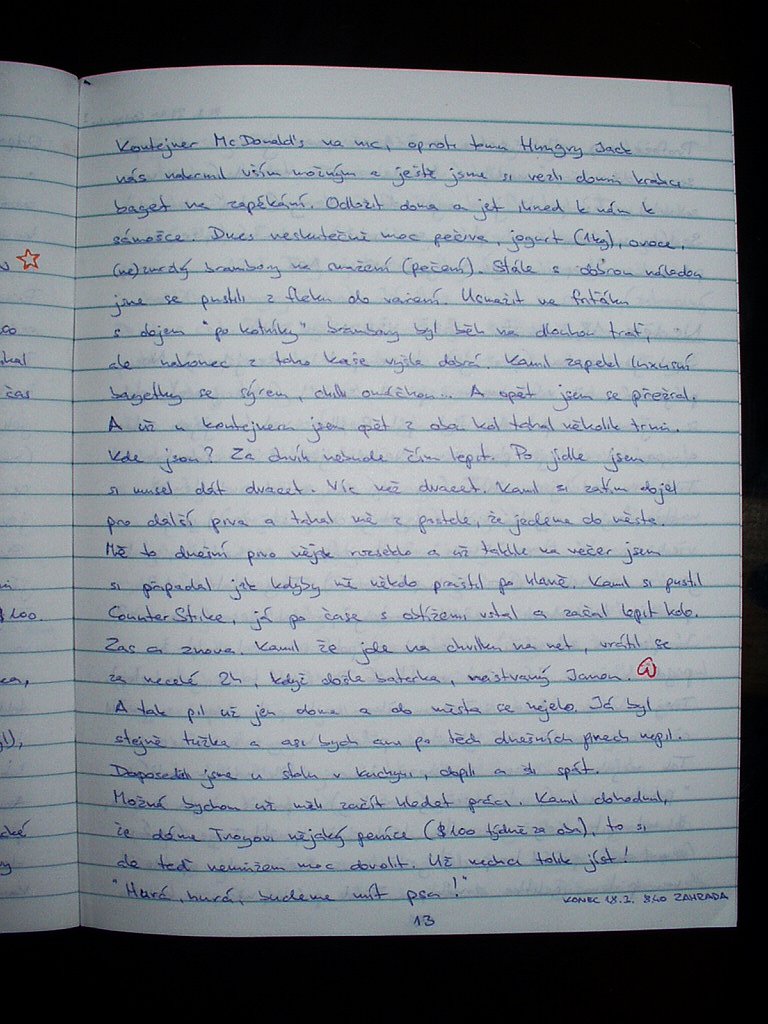 Kontejner McDonald's na nic, oproti tomu Hungry Jack
nás nakrmil vším možným a ještě jsme si vezli domů krabici
baget na zapékání. Odložit doma a jet ihned k nám k
sámošce. Dnes neskutečně moc pečiva, jogurt (1kg), ovoce,
(ne)zmrzlý brambory na smažení (pečení). Stále s dobrou náladou
jsme se pustili z fleku do vaření. Usmažit ve friťáku
s dojem "po kotníky" brambory byl běh na dlouhou trať,
ale nakonec z toho kaše vyšla dobrá. Kamil zapekl luxusní
bagetky se sýrem, chilli omáčkou... A opět jsem se přežral.
A už u kontejneru jsem opět z obou kol tahal několik trnů.
Kde jsou? Za chvíli nebude čím lepit. Po jídle jsem
si musel dát dvacet. Víc než dvacet. Kamil si zatím dojel
pro další piva a tahal mě z postele, že jedeme do města.
Mě to dnešní pivo nějak rozseklo a už takhle na večer jsem
si připadal jak kdyby mě někdo praštil po hlavě. Kamil si pustil
CounterStrike, já po čase s obtížemi vstal a začal lepit kolo.
Zas a znova. Kamil že jde na chvilku na net, vrátil se
za necelé 2h, když došla baterka, naštvaný Jamon.
A tak pil už jen doma a do města se nejelo. Já byl
stejně tužka a asi bych ani po těch dnešních pivech nepil.
Doposeděli jsme u stolu v kuchyni, dopili a šli spát.
Možná bychom už měli začít hledat práci. Kamil dohodnul,
že dáme Troyovi nějaký peníze ($100 týdně za oba), to si
ale teď nemůžem moc dovolit. Už nechci tolik jíst!
"Hurá, hurá, budeme mít psa!"
KONEC 18.2. 8:40 ZAHRADA
13
100.
čas